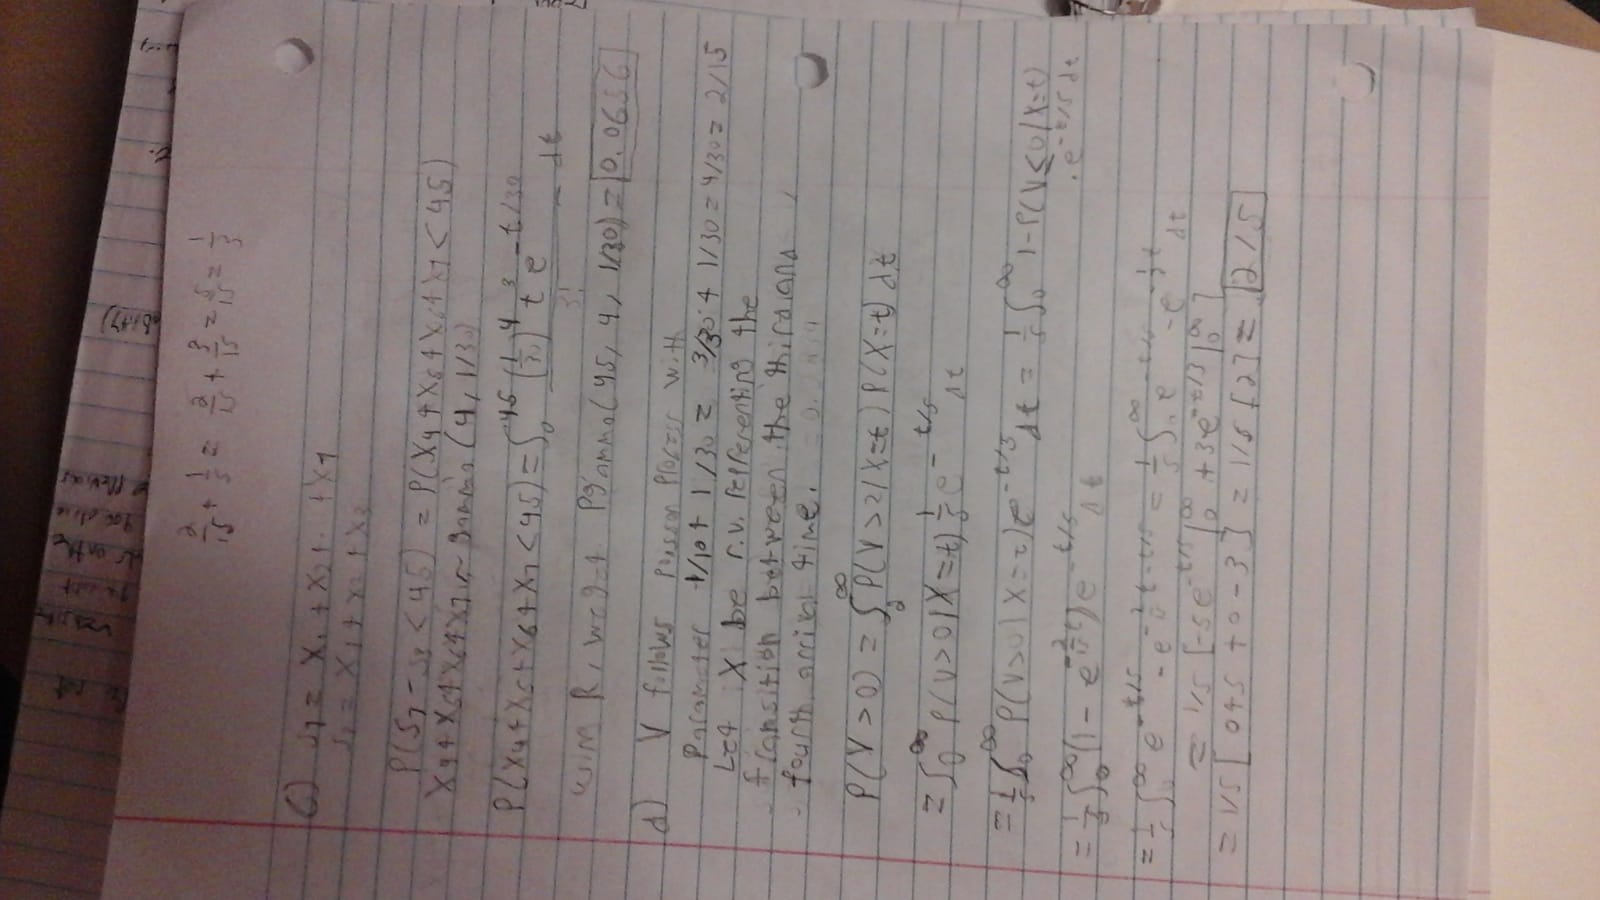 2/15 + 1/5 = 2/15 + 3/15 = 5/15 = 1/3
c) S7 = X1 + X2 + . + X7
S3 = X1 + X2 + X3
P(S7 - S3 < 45) = P(X4 + X5 + X6 + X7 < 45)
X4 + X5 + X6 + X7 ~ gamma (4, 1/30)
P(X4 + X5 + X6 + X7 < 45) = ∫_0^45 (1/30)^4 t^3 e^{-t/30} / 3! dt
using R, we get Pgamma(45, 4, 1/30) = 0.0656
d) V follows poisson process with
Parameter 1/10 + 1/30 = 3/30 + 1/30 = 4/30 = 2/15
Let X be r.v. representing the
transition between the third and
fourth arrival time.
P(V > 0) = ∫_0^∞ P(V > 2 | X = t) P(X = t) dt
= ∫_0^∞ P(V > 0 | X = t) 1/5 e^{-t/5} dt
= 1/5 ∫_0^∞ P(V > 0 | X = t) e^{-t/5} dt = 1/5 ∫_0^∞ 1 - P(V ≤ 0 | X = t)
· e^{-t/5} dt
= 1/5 ∫_0^∞ (1 - e^{-2/15 t}) e^{-t/5} dt
= 1/5 ∫_0^∞ e^{-t/5} - e^{-2/15 t - t/5} = 1/5 ∫_0^∞ e^{-t/5} - e^{-1/3 t} dt
= 1/5 [-5e^{-t/5} |_0^∞ + 3e^{-t/3} |_0^∞ ]
= 1/5 [ 0 + 5 + 0 - 3 ] = 1/5 [2] = 2/5